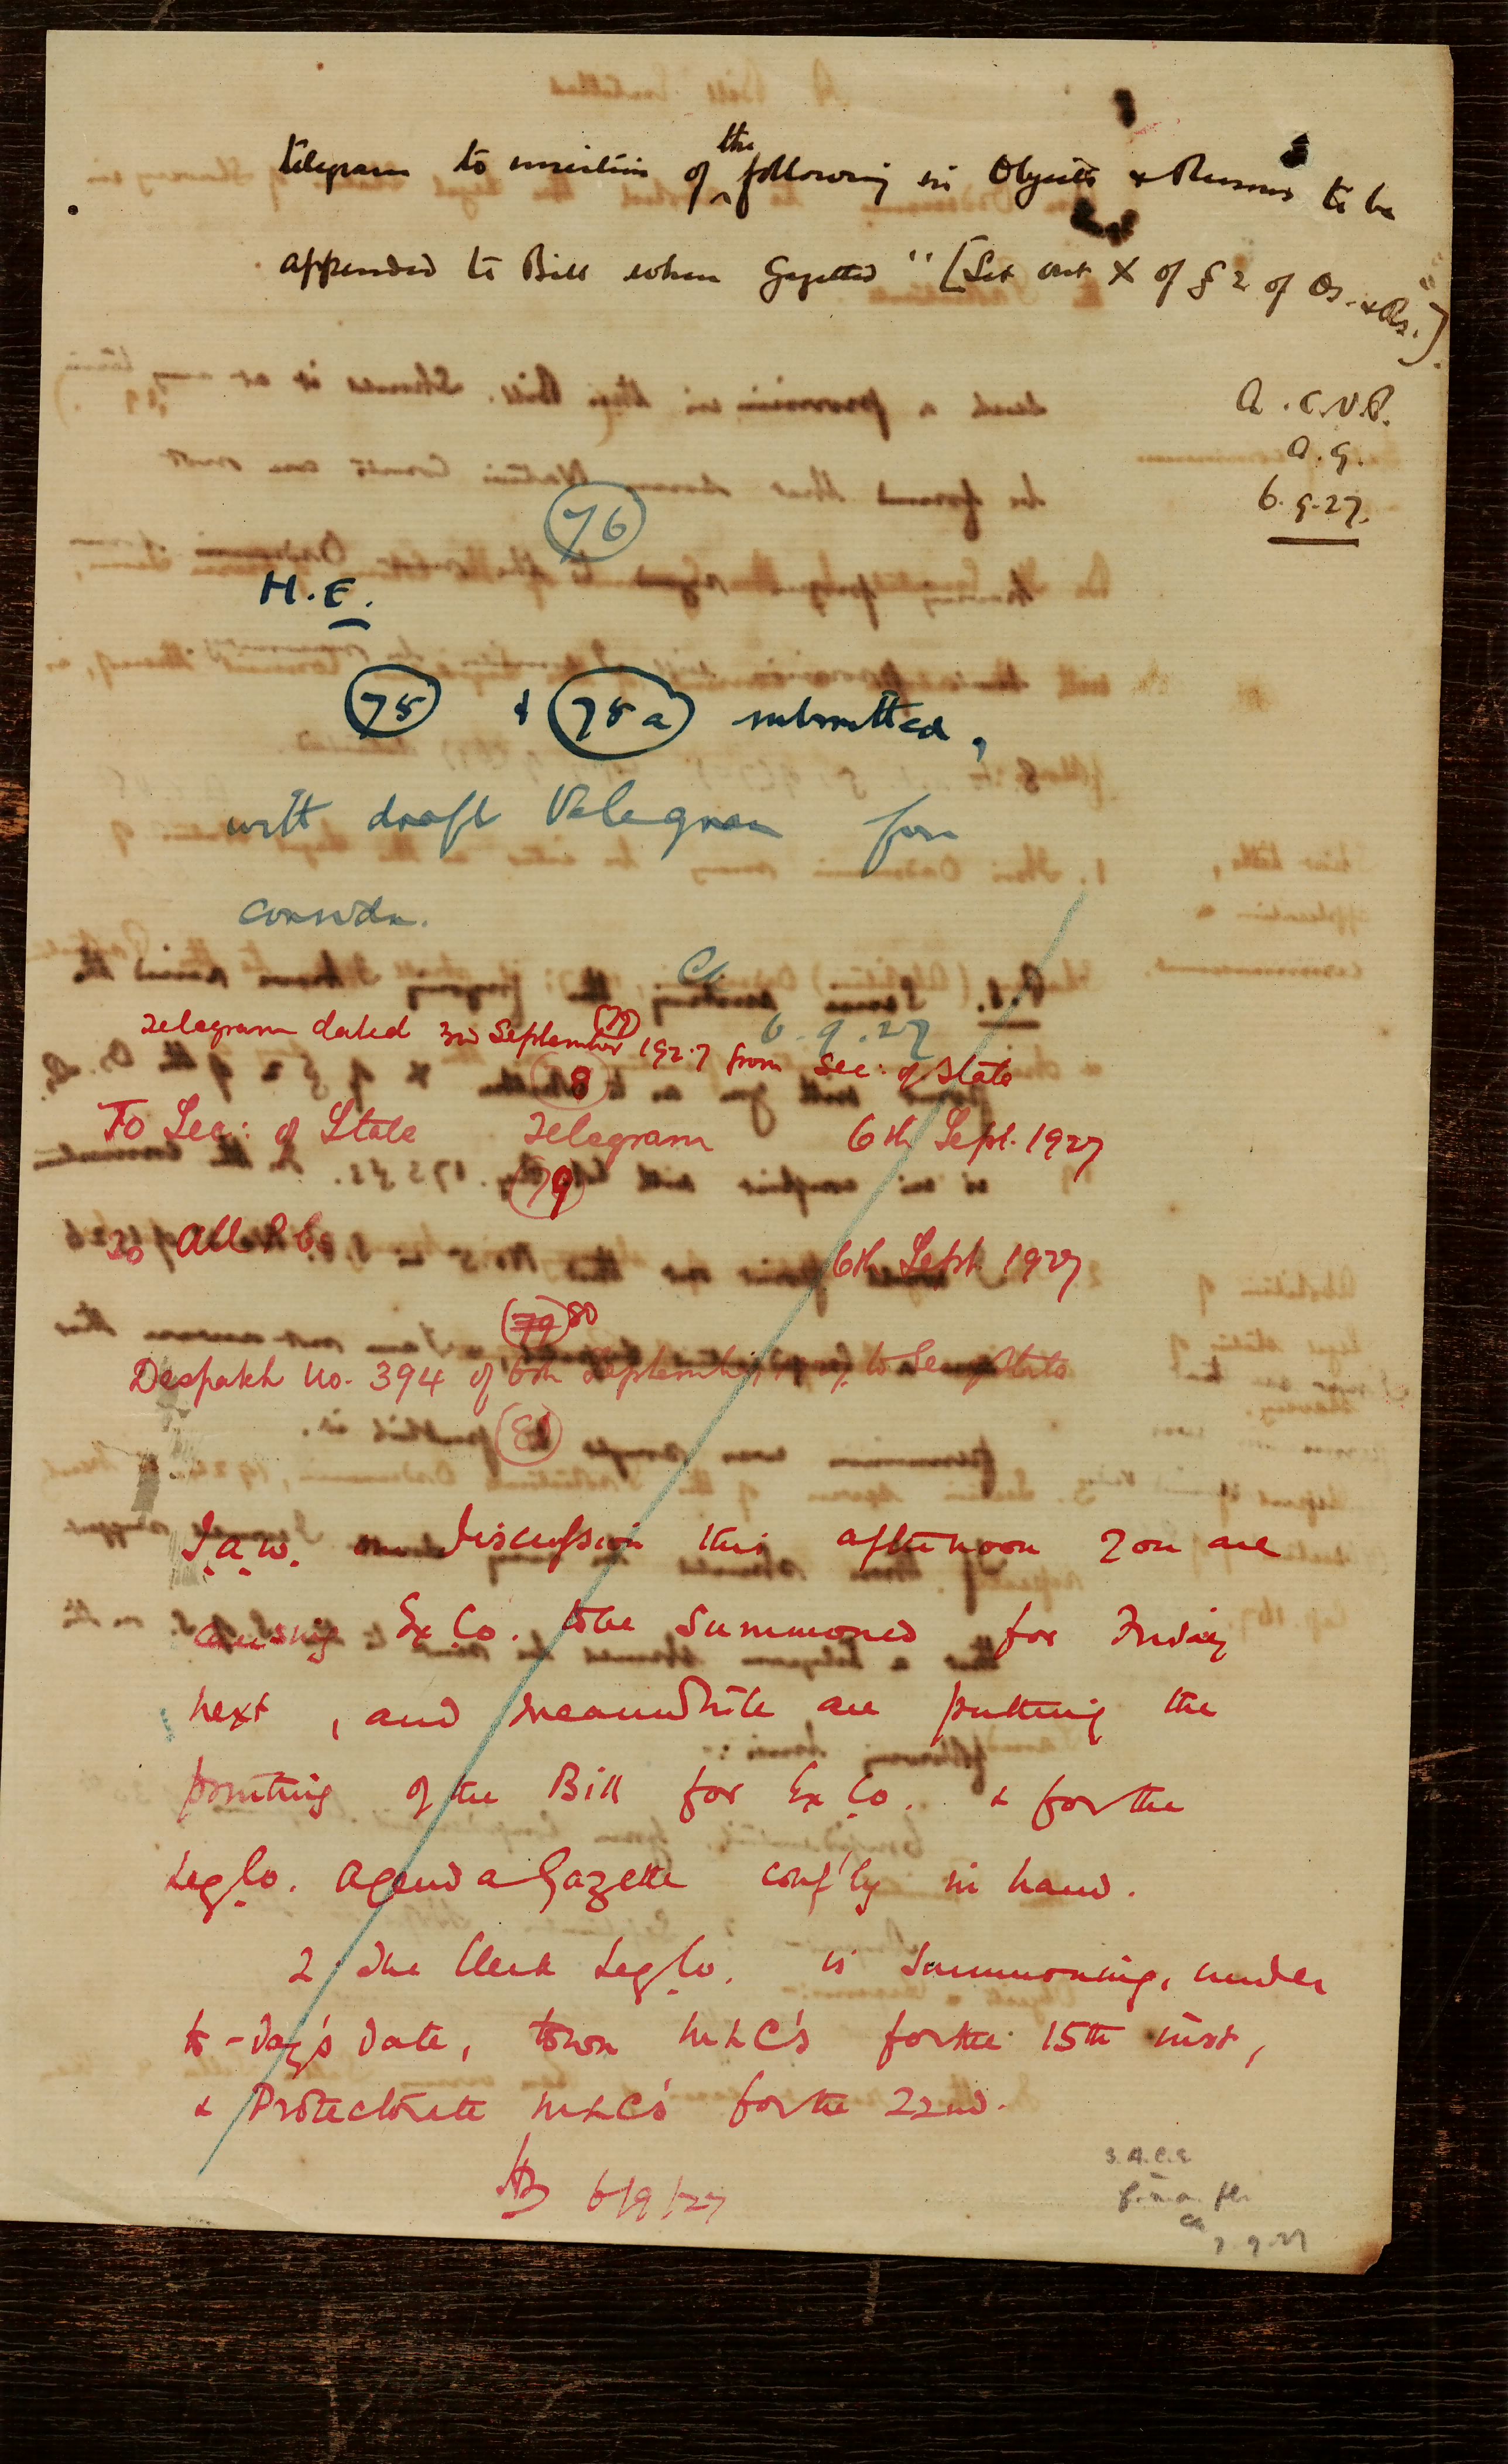 telegram to insertion of the following in Objects & Reasons to be
appended to Bill when Gazetted "[Set out X of § 2 of Os. & Rs.]".
A.C.V.P.
A.G.
6.9.27.
76
H.E.
75 & 75a submitted,
with draft telegram for
considn.
6.9.27
Telegram dated 3rd September 1927 from Sec: of State
78
To Sec: of State Telegram 6th Sept. 1927
79
To All P.Cs 6th Sept. 1927
(79) 80
Despatch No. 394 of 6th September, 1927 to Secy State
81
I.a.w. our discussion this afternoon you are
causing Ex.Co. to be summoned for Friday
next, and meanwhile are putting the
printing of the Bill for Ex.Co. & for the
Leg.Co. Agenda Gazette conf'ly in hand.
2 The Clerk Leg.Co. is summoning, under
to-day's date, town MLC's for the 15th inst,
& Protectorate MLC's for the 22nd.
6/9/27
7.9.27